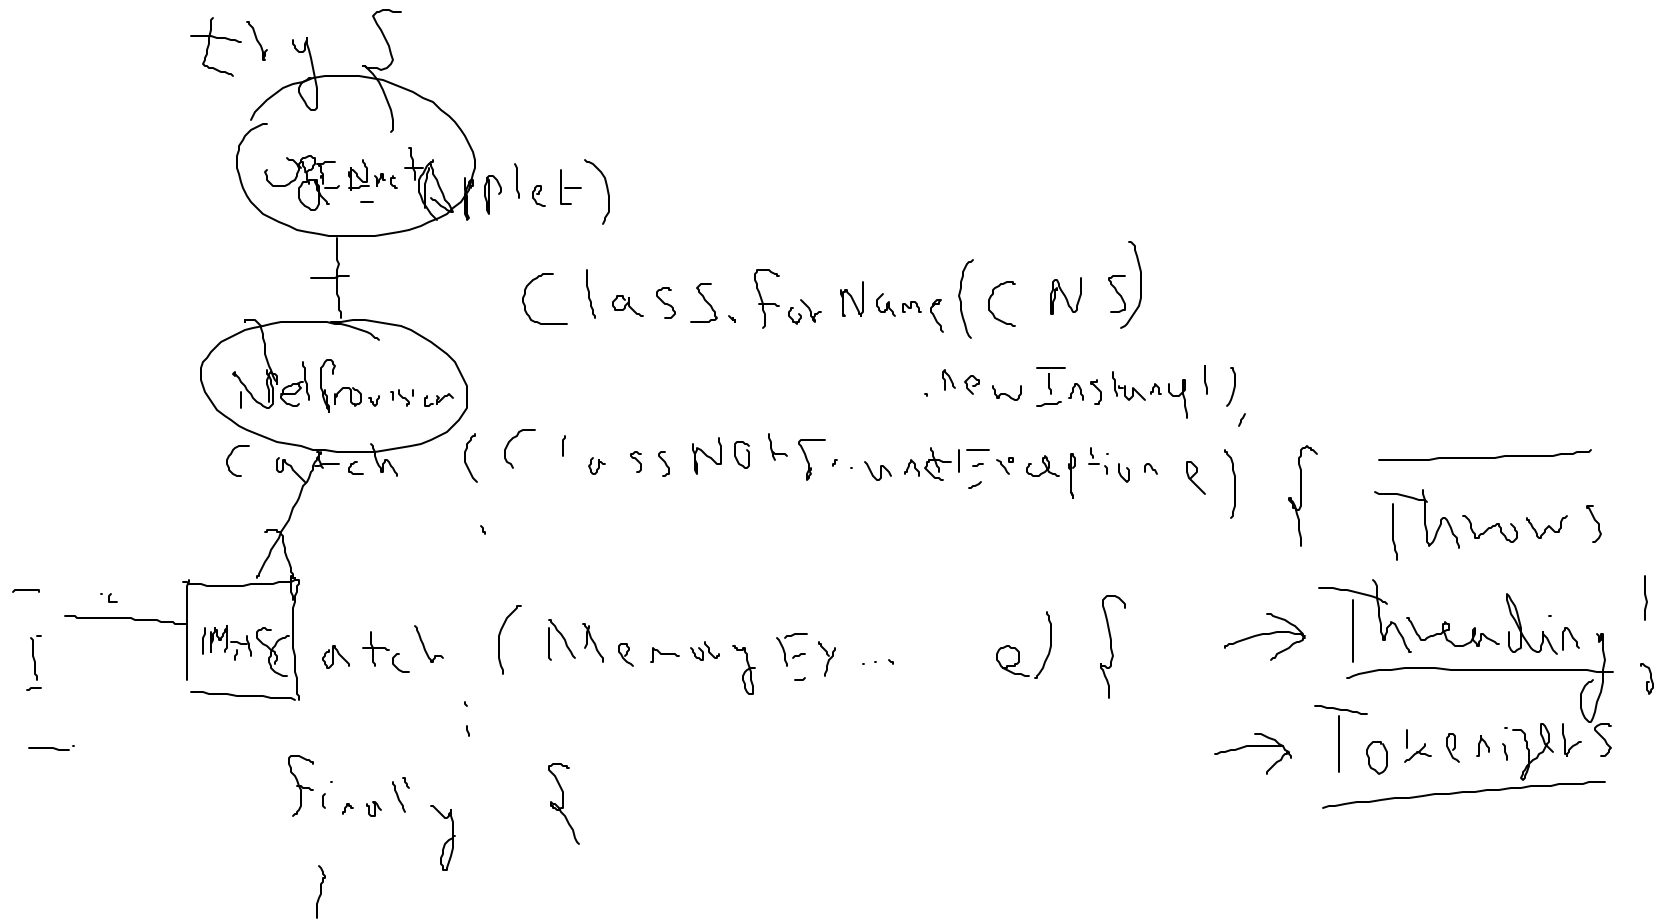 try {
Applet)
Class.forName(CNS)
.newInstance();
NetProvision
catch (ClassNotFoundException e) {
Throws
Threading
catch (MemoryEx... e) {
Tokenizers
finally {
}